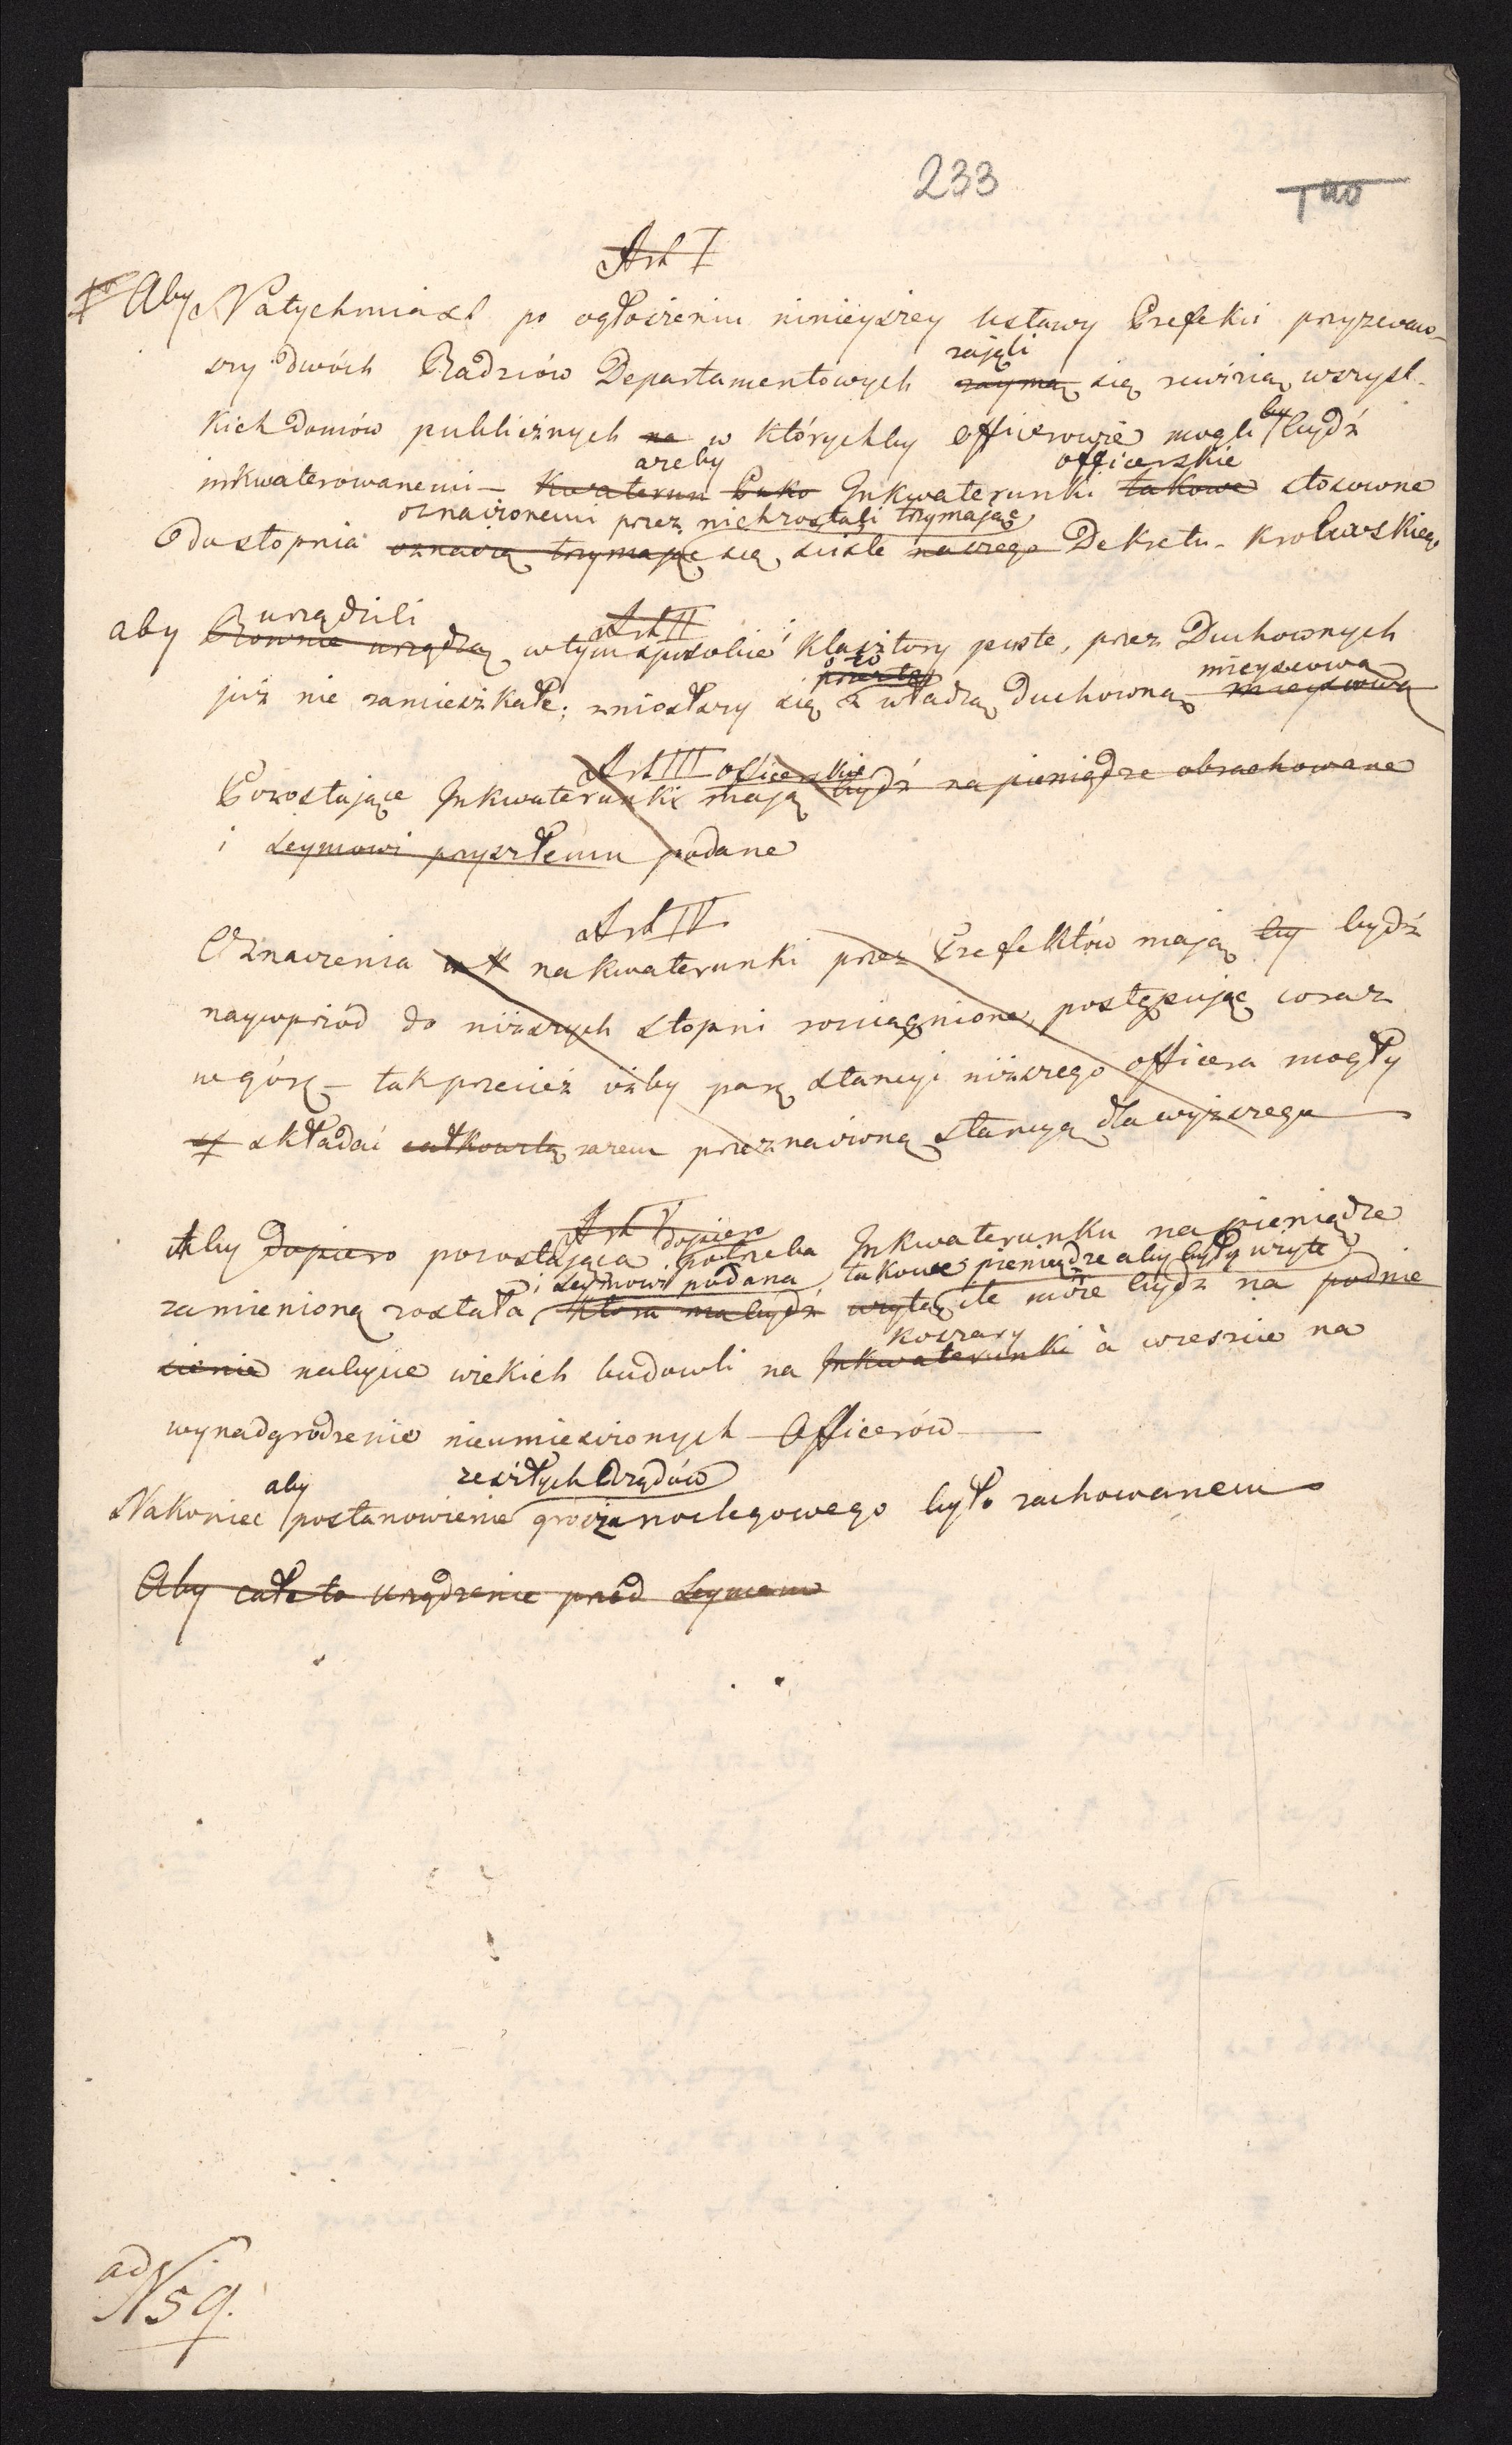 233
Art I
Aby Natychmiast po ogłoszeniu ninieyszey Ustawy Prefekci przyzwaw-
szy dwóch Radziów Departamentowych zaymą zajęli się rewizią wszyst-
kich domów publicznych na w którychby officerowie mogli by bydź
inkwaterowanemi – Kwaterun azeby Inkwaterunki takowe officerskie stosowne
do stopnia oznaczą trzymając oznaczonemi przez nich zostali trzymając się sciśle naszego Dekretu Krolewskiego
Art II
aby Rownie urządzą urządzili w tym sposobie klasztory puste, przez Duchownych
już nie zamieszkałe; zniosłszy się o to z władzą duchowną mieyscową mieyscową
Art III
Pozostające Inkwaterunki officerskie mają bydź na pieniądze obrachowane
i Seymowi przyszłemu podane
Art IV
Oznaczenia na kwaterunki przez Prefektów mają by bydź
naywprzód do niższych stopni rozciągnione, postępując coraz
w górę – tak przecież iżby parę stancyi niższego officera mogły
składać całkowitą razem przeznaczoną stancyą dla wyższego
Art V
Aby dopiero pozostająca dopiero potrzeba Inkwaterunku na pieniądze
zamienioną została i Seymowi podana która ma bydź takowe pieniądze aby były użyte użytą ile może bydź na podnie
sienie nabycie wiekich budowli na Inkwaterunki koszary a wreszcie na
wynadgrodzenie nieumiesczonych Officerów
Nakoniec aby postanowienie zeszłych Urządów grosza noclegowego było zachowanem
Aby całe to urządzenie przed Seymem
ad N 59.